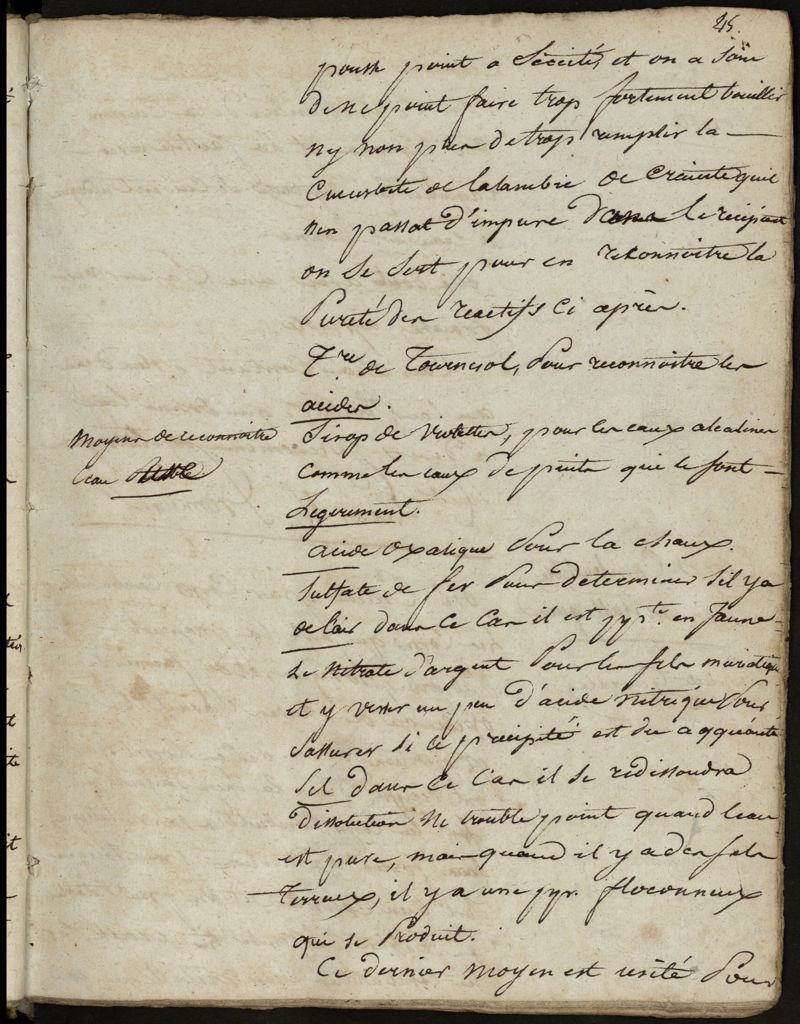 45.
point a Siccité, et on a soin
de ne point faire trop fortement bouillir
ny non plus de trop remplir la
Cucurbite de lalambic de Crainte quil
nen passat d'impure dans le recipient
on se sert pour en reconnoitre la
Pureté des reactifs Ci après.
T.re de Tournesol, Pour reconnoitre les
acides.
Moyens de reconnoitre
leau
Sirop de violettes, pour les eaux alcalines
comme les eaux de puits qui le sont
Legerement.
acide oxalique Pour la chaux.
Sulfate de fer Pour determiner Sil y a
de lair dans Ce Cas il est pp.té en Jaune
Le nitrate d'argent Pour les sels muriatiques
et y verser un peu d'acide nitrique Pour
sassurer si le précipité est du a
Sel dans Ce Cas il se redissoudra
Dissolution ne trouble point quand leau
est pure, mais quand il y a des sels
Terreux, il y a une floconneux
qui se Produit.
Ce dernier moyen est usité Pour